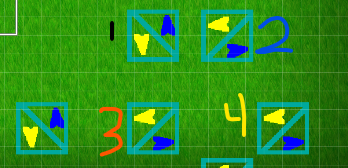 1 2
3 4